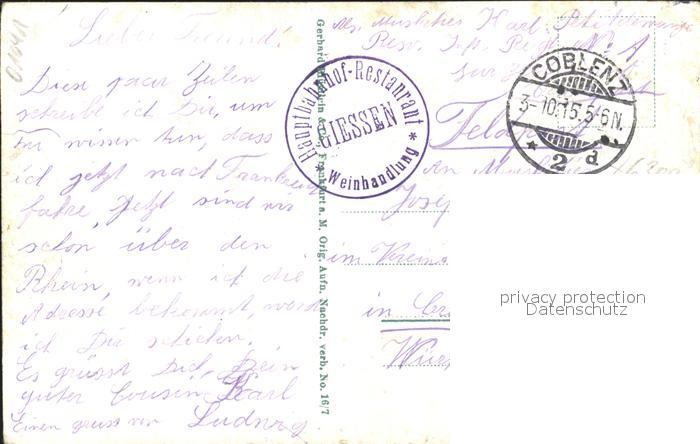 Lieber Freund!
Diese paar Zeilen
schreibe ich Dir, um
zu wissen tun, dass
ich jetzt nach Frankreich
fahre, Jetzt sind wir
schon über den
Rhein, wenn ich die
Adresse bekommt, werde
ich Dir schicken.
Es grüsst Dich, Dein
guter Cousin Karl
Einen gruss von Ludwig
Gerhard Frankfurt a. M. Orig. Aufn. Nachdr. verb. No. 16/7
Hauptbahnhof-Restaurant
GIESSEN
* Weinhandlung *
Abs. Musketier Karl
Res. Inf. Regt. No.
COBLENZ
3-10.15.5-6N.
* 2 d
An Musketier
Josef
im Vereins
in
privacy protection
Datenschutz